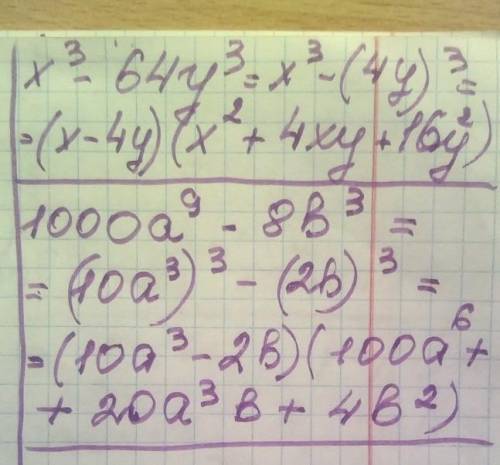 x³ - 64y³ = x³ - (4y)³ =
= (x - 4y)(x² + 4xy + 16y²)
1000a⁹ - 8b³ =
= (10a³)³ - (2b)³ =
= (10a³ - 2b)(100a⁶ +
+ 20a³b + 4b²)